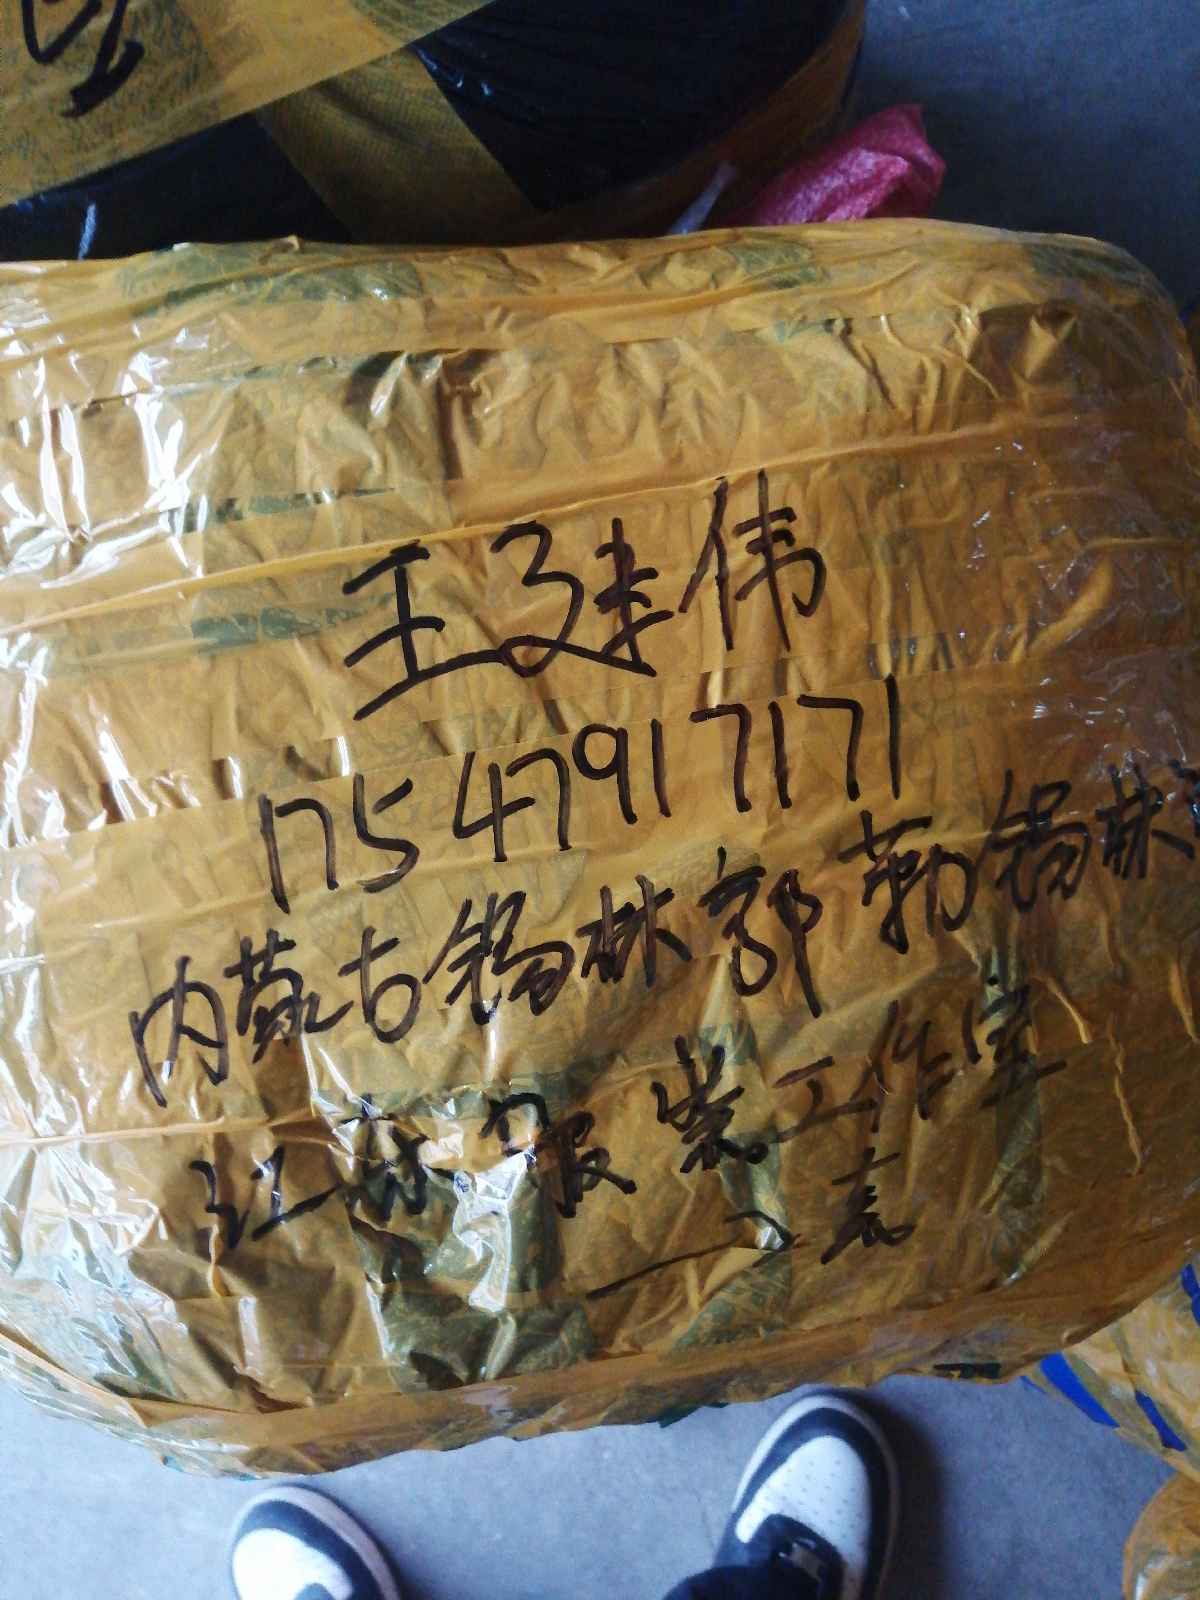 王建伟
17547917171
内蒙古锡林郭勒锡林
江东服装工作室